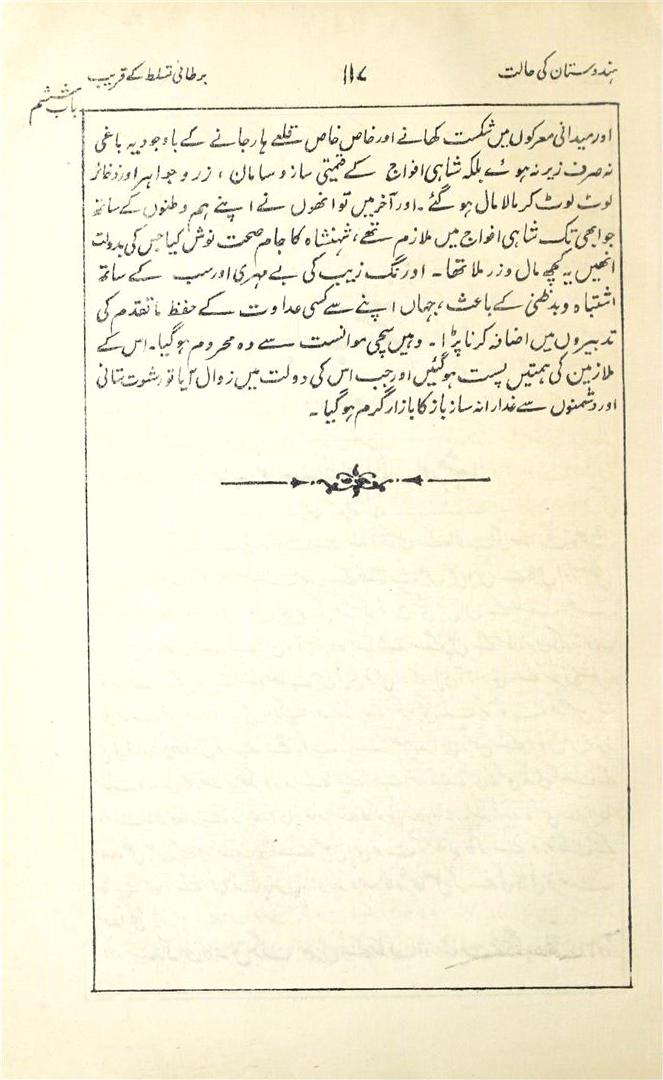 ہندوستان کی حالت ۱۱۷ برطانی تسلط کے قریب
باب ششم
اور میدانی معرکوں میں شکست کھانے اور خاص خاص قلعے ہار جانے کے باوجود یہ باغی
نہ صرف زیر نہ ہوئے بلکہ شاہی افواج کے قیمتی ساز و سامان ، زر و جواہر اور ذخائر
لوٹ لوٹ کر مالا مال ہو گئے ۔ اور آخر میں تو انھوں نے اپنے ہم وطنوں کے ساتھ
جو ابھی تک شاہی افواج میں ملازم تھے ، شہنشاہ کا جام صحت نوش کیا جس کی بدولت
انھیں یہ کچھ مال و زر ملا تھا ۔ اورنگ زیب کی بے مہری اور سب کے ساتھ
اشتباہ و بدظنی کے باعث ، جہاں اپنے سے کسی عداوت کے حفظ ماتقدم کی
تدبیروں میں اضافہ کرنا پڑا ۔ وہیں سچی موانست سے وہ محروم ہو گیا ۔ اس کے
ملازمین کی ہمتیں پست ہو گئیں اور جب اس کی دولت میں زوال آیا تو رشوت ستانی
اور دشمنوں سے غدارانہ ساز باز کا بازار گرم ہو گیا ۔